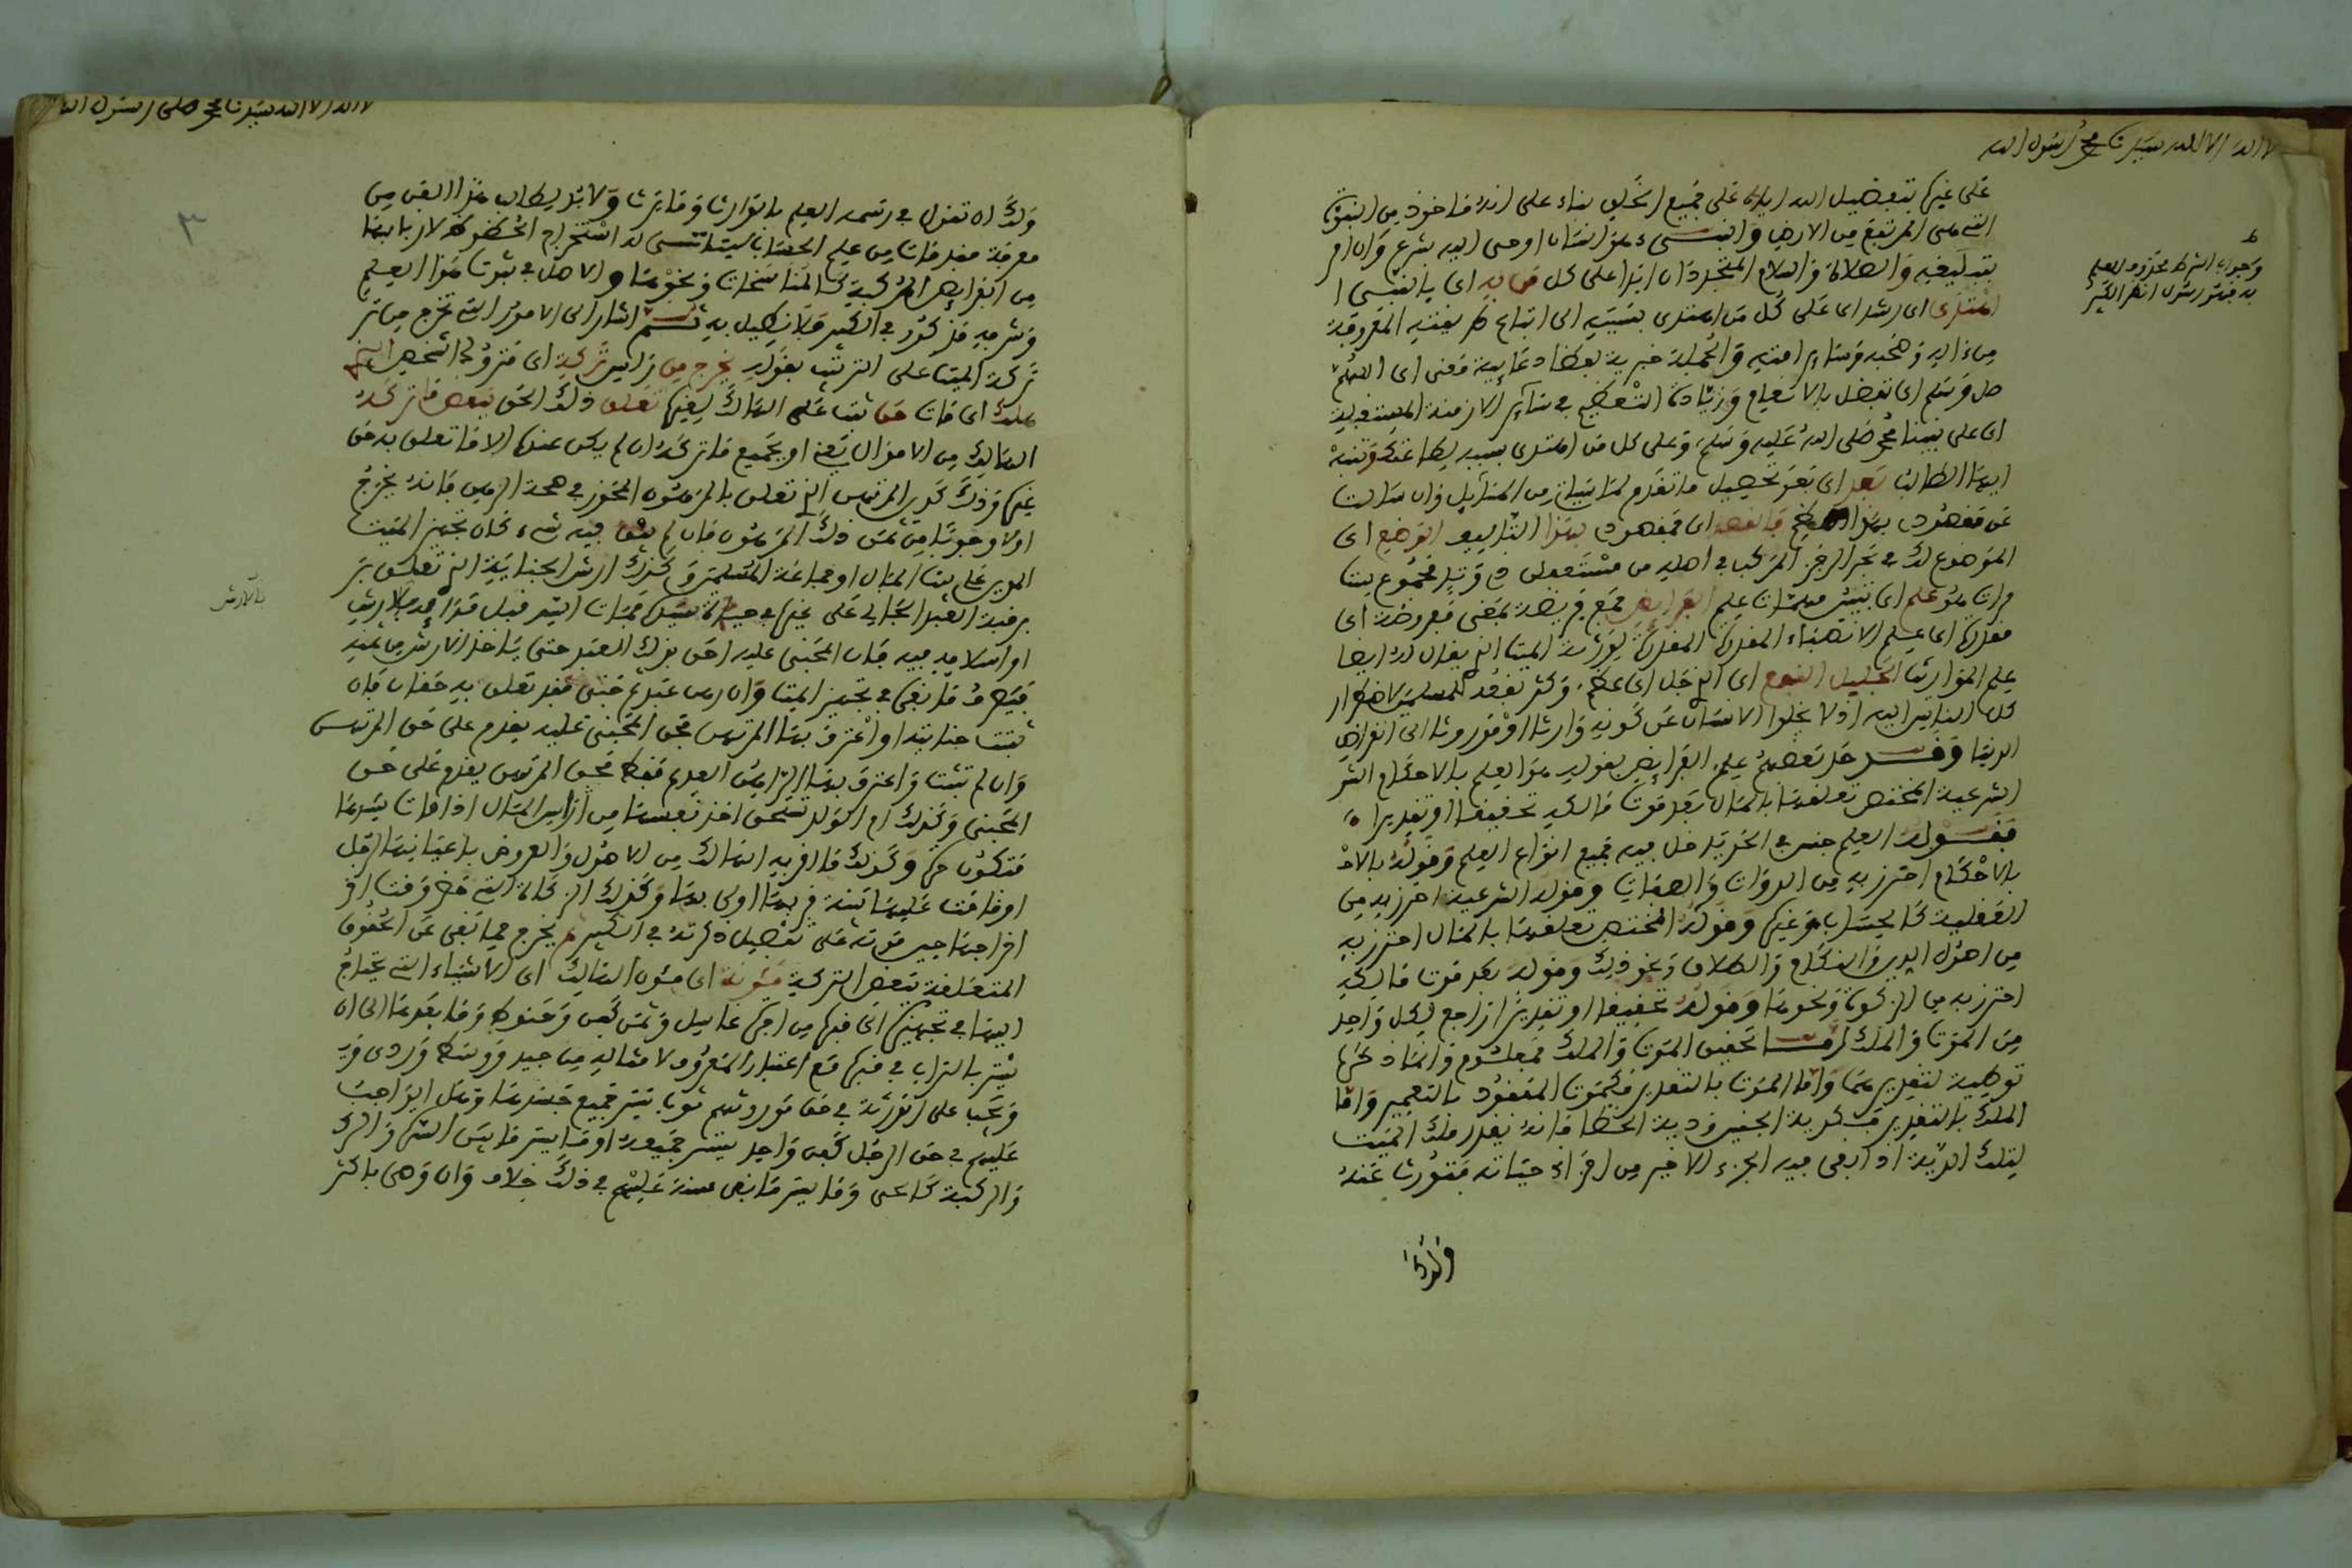 لا اله الا الله سيدنا محمد رسول الله
على غيره بتفضيل الله اياه على جميع الخلق بناء على انه ماخوذ من النبوة
التي هي المرتفع من الارض والنبيء هو انسان اوحي اليه بشرع وان امر
بتبليغه والصلاة والسلام المتجددان ابدا على كل من به اي بالنبي ا
اهتدى اي رشد اي على كل من اهتدى بنسبته الى اتباع طريقته المعروفة
من ءاله وصحبه وسائر امته والجملة خبرية لفظا دعائية معنى اي اللهم
صل وسلم اي تفضل بالانعام وزيادة التعظيم في سائر الازمنة المستقبلة
اي على نبينا محمد صلى الله عليه وسلم وعلى كل من اهتدى بسببه لطاعتك وتنبه
ايها الطالب بعد اي بعد تحصيل ما تقدم لما سياتي من المسائل وان سالت
عن مقصودي بهذا النظم فالقصد اي مقصودي بهذا التاليف الوضع اي
الموضوع له في بحر الرجز المركب في اصله من مستفعلن
مرات هو علم اي تبيين مهمات علم الفرائض جمع فريضة بمعنى مفروضة اي
مقدرة اي علم الانصباء المقدرة لورثة الميت الذي يقال له ايضا
علم المواريث الجليل النفع اي الذي جل اي عظم وكثر نفعه للمسلمين لاضطرار
كل الناس اليه اذ لا يخلوا الانسان عن كونه وارثا او موروثا الى انقراض
الدنيا وقد حد بعضهم علم الفرائض بقوله هو العلم بالاحكام الشر
الشرعية المختص تعلقها بالمال بعد موت مالكه تحقيقا او تقديرا
فقوله العلم جنس في الحد يدخل فيه جميع انواع العلم وقوله بالاح
بالاحكام احترز به من الذوات والصفات وقوله الشرعية احترز به من
العقلية كالحساب وغيره وقوله المختص تعلقها بالمال احترز به
من اصول الدين والنكاح والطلاق ونحو ذلك وقوله بعد موت مالكه
احترز به من الزكوة ونحوها وقوله تحقيقا او تقديرا راجع لكل واحد
من الموت والملك اما تحقيق الموت والملك فمعلوم وانما ذكرا
توطية لتقديرهما واما الموت بالتقدير فكموت المفقود بالتعمير واما
الملك بالتقدير فكدية الجنين ودية الخطا فانه يقدر ملك الميت
لتلك الدية اذا بقي فيه الجزء الاخير من اجزاء حياته فتورث عنه
وجواب الشرط محذوف للعلم
لا اله الا الله سيدنا محمد صلى رسول الله
٣
ولك ان تقول في رسمه العلم بالوارث وما يرث ولا بد لطالب هذا الفن من
معرفة مقدمات من علم الحساب ليتاتى له استخراج الحظوظ لاربابها
من الفرائض المركبة كالمناسخات ونحوها والاصل في ثبوت هذا العلم
وشرفه مذكور في الكبير فلا نطيل به ثم اشار الى الامور التي تخرج من تر
تركة الميت على الترتيب بقوله يخرج من راس تركة اي متروك الشخص الذي
هلك اي مات حق ثبت على الهالك لغيره تعلق ذلك الحق ببعض ما تركه
الهالك من الاموال بعينه او بجميع ما تركه ان لم يكن عنده الا ما تعلق به حق
غيره وذلك كدين المرتهن الذي تعلق بالمرهون المحوز في صحة الراهن فانه يخرج
اولا وجوبا من ثمن ذلك المرهون فان لم يبق فيه شيء كان تجهيز الميت
المدين على بيت المال او جماعة المسلمين وكذلك ارش الجناية الذي تعلق بر
برقبة العبد الجاني على غيره في حياة سيده فمات السيد قبل فدائه بالارش
او اسلامه فيه فان المجني عليه احق بذلك العبد حتى ياخذ الارش من ثمنه
فيصرف ما بقي في تجهيز الميت وان رهن عبد ثم جنى فقد تعلق به حقان فان
ثبتت جنايته او اعترف بها المرتهن فحق المجني عليه يقدم على حق المرتهن
وان لم تثبت واعترف بها الراهن العديم فقط فحق المرتهن يقدم على حق
المجني وكذلك ام الولد تستحق اخذ نفسها من راس المال اذا مات سيدها
فتكون حرة وكذلك ما اقر به الهالك من الاصول والعروض باعيانها لرجل
او قامت عليها بينة فربها اولى بها وكذلك الزكاة التي حضر وقت اخر
اخراجها حين موته على تفصيل ذكرته في الكبير ثم يخرج مما بقي عن الحقوق
المتعلقة ببعض التركة مؤونة اي مؤن الهالك اي الاشياء التي تحتاج
اليها في تجهيزه الى قبره من اجرة غاسل وثمن كفن وحنوط وما بعدها الى ان
يستر بالتراب في قبره مع اعتبار المعروف لامثاله من جيد ووسط وردي ور
ويجب على الورثة في حق موروثهم ثوب يستر جميع جسدها وهل الواجب
عليهم في حق الرجل كفن واحد يستر جميعه او ما يستر ما بين السرة والر
والركبة كالحي وما يستر ما بقي سنة عليهم في ذلك خلاف وان وصى باكثر
بالارش